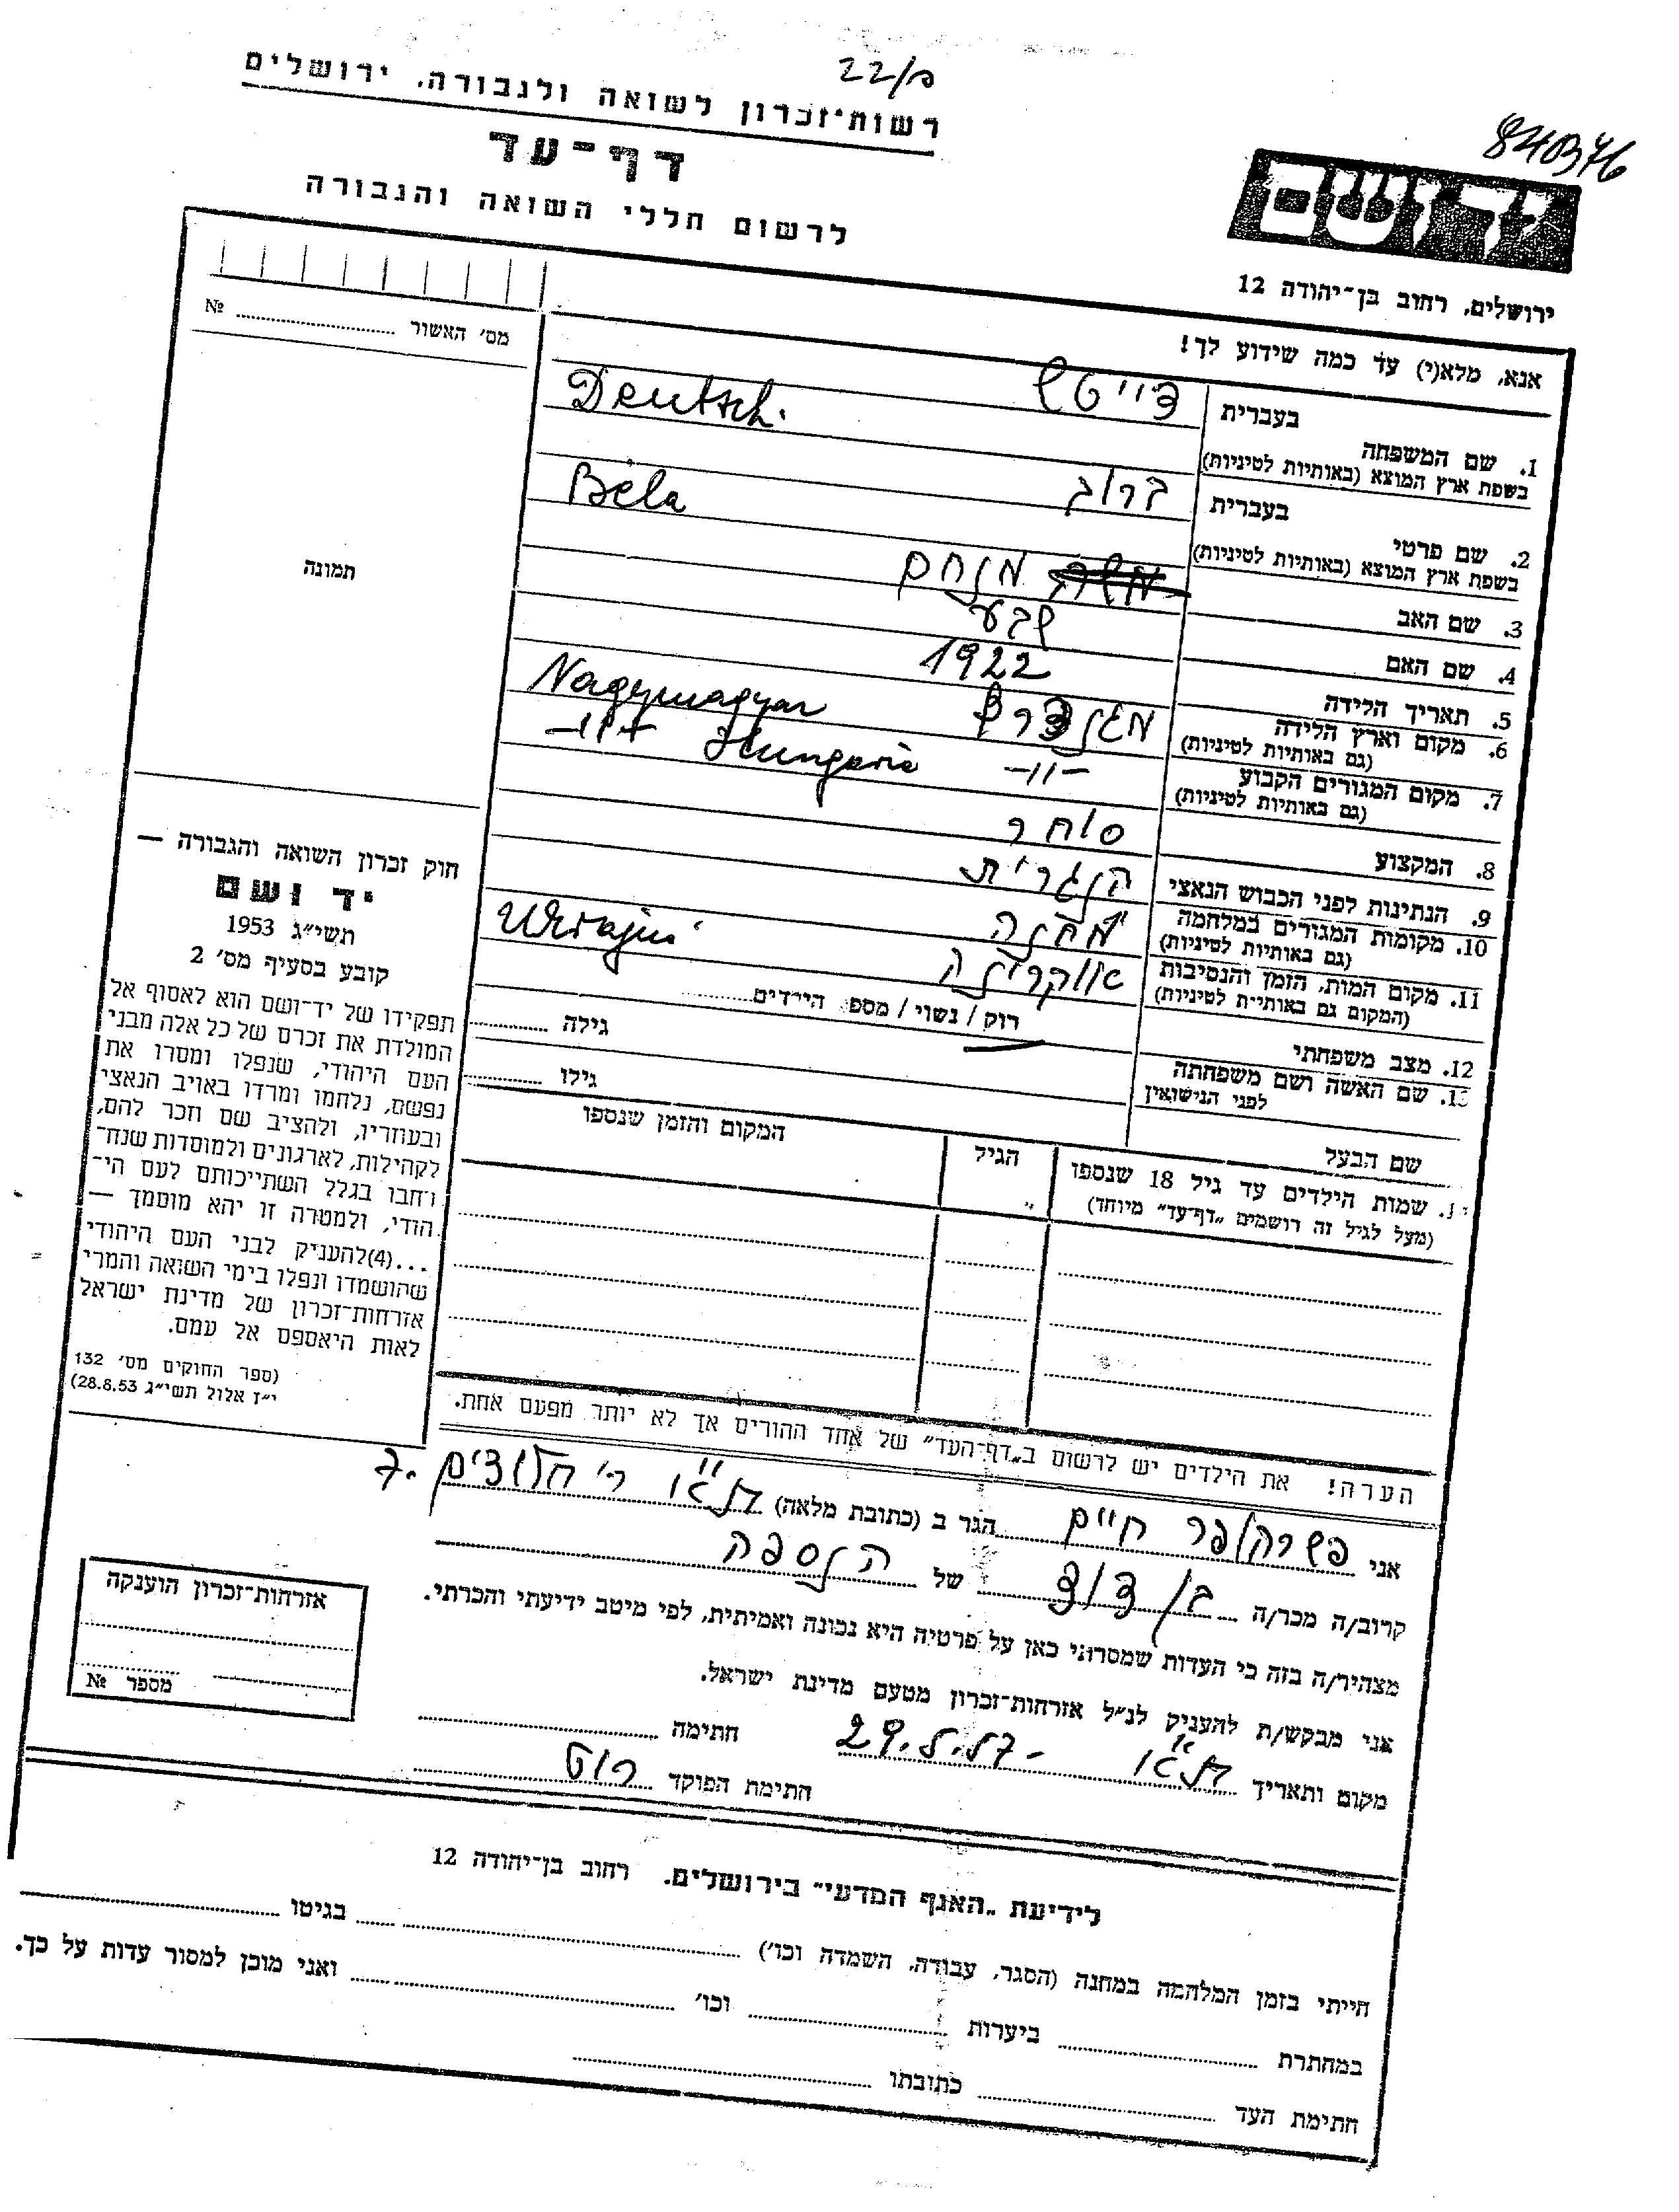 22/ם
84B76
רשות־זכרון לשואה ולגבורה, ירושלים
דף־עד
לרשום חללי השואה והגבורה
יד ושם
ירושלים, רחוב בן־יהודה 12
מס׳ האשור № ........
אנא, מלא(י) עד כמה שידוע לך!
1. שם המשפחה
בעברית דייטש
בשפת ארץ המוצא (באותיות לטיניות) Deutsch.
2. שם פרטי
בעברית ברוך
בשפת ארץ המוצא (באותיות לטיניות) Béla
3. שם האב מנחם
4. שם האם שבע
5. תאריך הלידה 1922
6. מקום וארץ הלידה
(גם באותיות לטיניות) Nagymagyar
7. מקום המגורים הקבוע –11–
(גם באותיות לטיניות) –11– Hungaria
8. המקצוע סוחר
9. הנתינות לפני הכבוש הנאצי הנגרית
10. מקומות המגורים במלחמה מחנה
(גם באותיות לטיניות)
11. מקום המות, הזמן והנסיבות אוקרינה
(המקום גם באותיות לטיניות) Ukrajna
12. מצב משפחתי רוק / נשוי / מספר הילדים ........
13. שם האשה ושם משפחתה
לפני הנישואין גילה ........
שם הבעל גילו ........
שמות הילדים עד גיל 18 שנספו
(מעל לגיל זה רושמים „דף־עד״ מיוחד)
הגיל
המקום והזמן שנספו
תמונה
חוק זכרון השואה והגבורה —
יד ושם
תשי״ג 1953
קובע בסעיף מס׳ 2
תפקידו של יד־ושם הוא לאסוף אל
המולדת את זכרם של כל אלה מבני
העם היהודי, שנפלו ומסרו את
נפשם, נלחמו ומרדו באויב הנאצי
ובעוזריו, ולהציב שם וזכר להם,
לקהילות, לארגונים ולמוסדות שנח־
רבו בגלל השתייכותם לעם הי־
הודי, ולמטרה זו יהא מוסמך —
...(4) להעניק לבני העם היהודי
שהושמדו ונפלו בימי השואה והמרי
אזרחות־זכרון של מדינת ישראל
לאות היאספם אל עמם.
(ספר החוקים מס׳ 132
י״ז אלול תשי״ג 28.8.53)
הערה! את הילדים יש לרשום ב„דף־העד״ של אחד ההורים אך לא יותר מפעם אחת.
אני פשרהופר חיים הגר ב (כתובת מלאה) ת״א ר׳ חלוצים 7.
קרוב/ה מכר/ה בן דוד של הנספה
מצהיר/ה בזה כי העדות שמסרתי כאן על פרטיה היא נכונה ואמיתית, לפי מיטב ידיעתי והכרתי.
אני מבקש/ת להעניק לנ״ל אזרחות־זכרון מטעם מדינת ישראל.
מקום ותאריך ת״א – 29.5.57 חתימה ........
חתימת הפוקד רוט
אזרחות־זכרון הוענקה
מספר №
לידיעת „האגף המדעי״ בירושלים, רחוב בן־יהודה 12
הייתי בזמן המלחמה במחנה (הסגר, עבודה, השמדה וכו׳) ........ בגיטו ........
במחתרת ........ ביערות ........ וכו׳ ........ ואני מוכן למסור עדות על כך.
חתימת העד ........ כתובתו ........